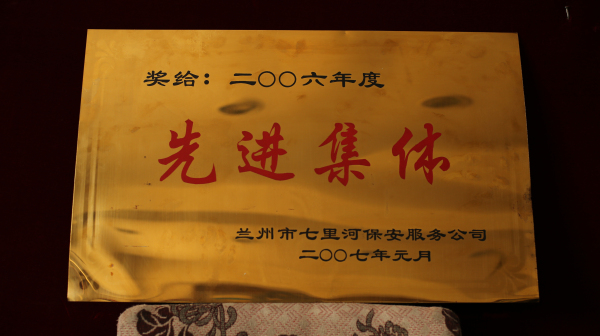 奖给：二〇〇六年度
先进集体
兰州市七里河保安服务公司
二〇〇七年元月